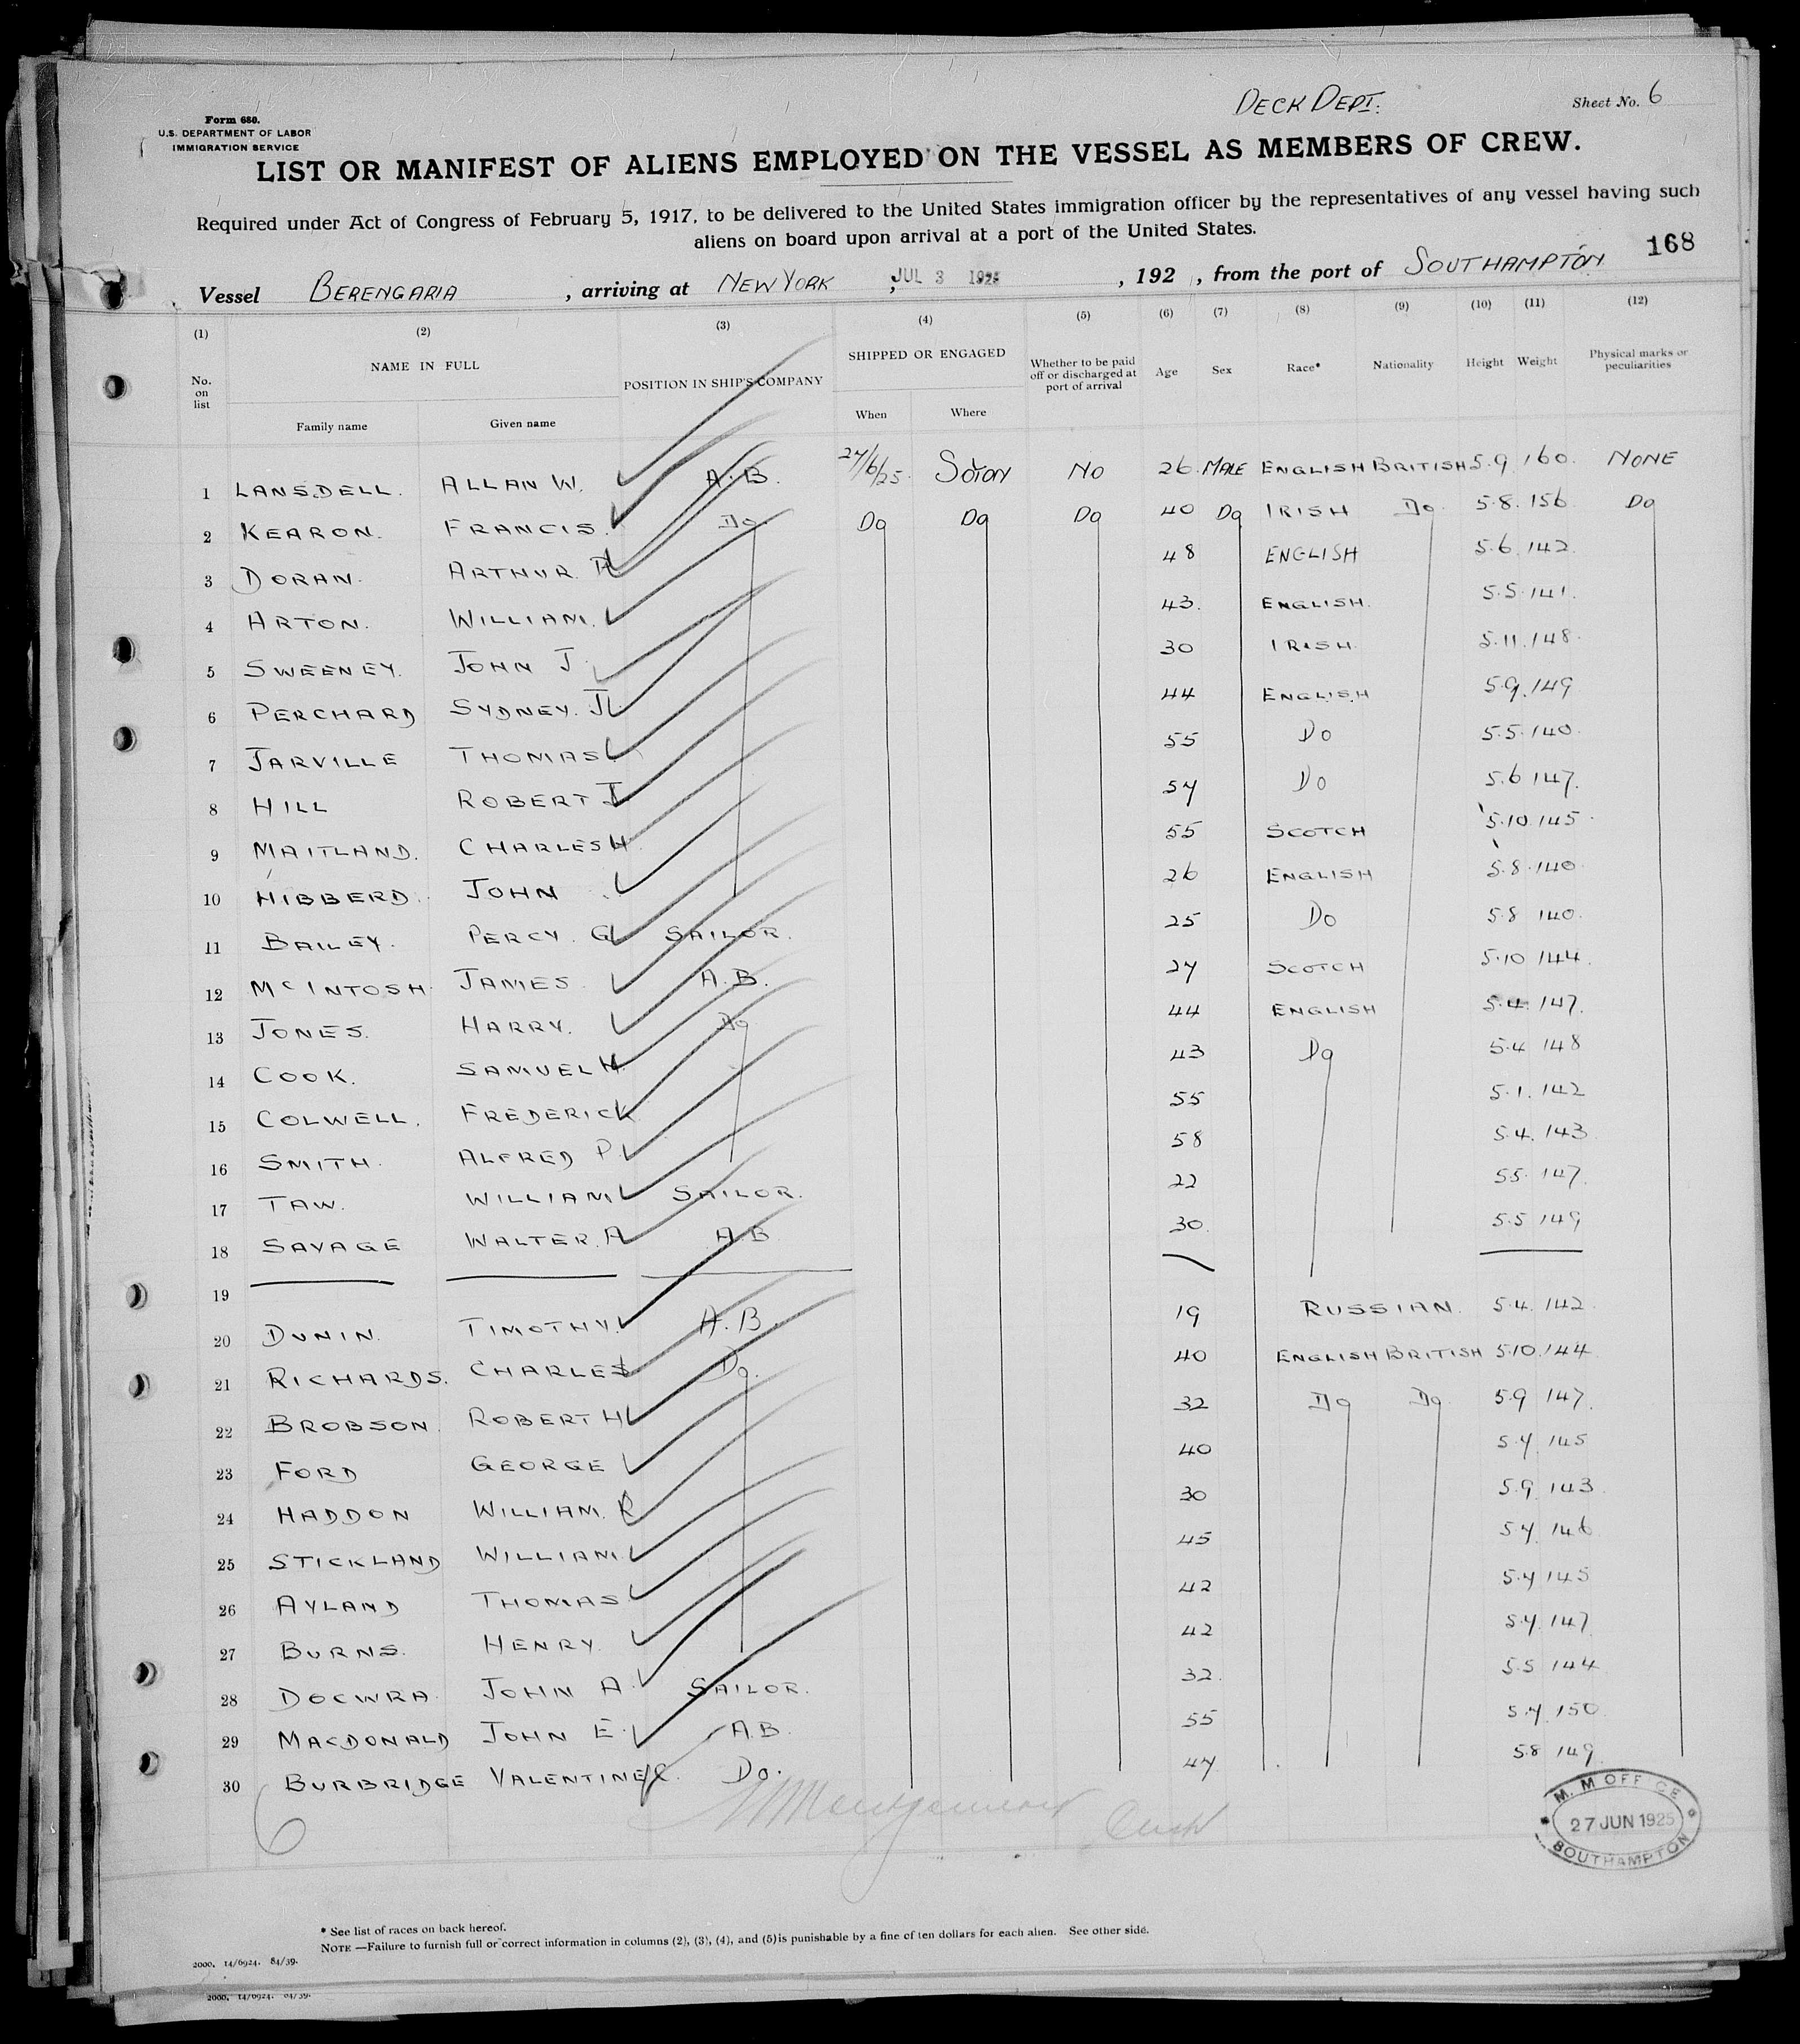 DECK DEPT.
Sheet No. 6
Form 680.
U.S. DEPARTMENT OF LABOR
IMMIGRATION SERVICE
LIST OR MANIFEST OF ALIENS EMPLOYED ON THE VESSEL AS MEMBERS OF CREW.
Required under Act of Congress of February 5, 1917, to be delivered to the United States immigration officer by the representatives of any vessel having such
aliens on board upon arrival at a port of the United States.
168
Vessel BERENGARIA, arriving at NEW YORK, JUL 3 1925, 192 , from the port of SOUTHAMPTON
(1) (2) (3) (4) (5) (6) (7) (8) (9) (10) (11) (12)
No. on list NAME IN FULL POSITION IN SHIP'S COMPANY SHIPPED OR ENGAGED Whether to be paid off or discharged at port of arrival Age Sex Race* Nationality Height Weight Physical marks or peculiarities
Family name Given name When Where
1 LANSDELL. ALLAN W. A.B. 27/6/25 SOTON NO 26 MALE ENGLISH BRITISH 5.9 160 NONE
2 KEARON. FRANCIS. Do Do Do Do 40 Do IRISH Do 5.8. 156 Do
3 DORAN. ARTHUR. 48 ENGLISH 5.6. 142
4 ARTON. WILLIAM. 43. ENGLISH. 5.5. 141.
5 SWEENEY. JOHN J 30 IRISH 5.11. 148
6 PERCHARD SYDNEY. J 44 ENGLISH 5.9. 149
7 JARVILLE THOMAS 55 Do 5.5. 140
8 HILL ROBERT J 57 Do 5.6 147.
9 MAITLAND. CHARLES H 55 SCOTCH 5.10. 145
10 HIBBERD. JOHN 26 ENGLISH 5.8. 140
11 BAILEY. PERCY. G SAILOR. 25 Do 5.8 140.
12 McINTOSH JAMES A.B. 27 SCOTCH 5.10 144
13 JONES. HARRY. Do 44 ENGLISH 5.4. 147.
14 COOK. SAMUEL H. 43 Do 5.4 148
15 COLWELL. FREDERICK 55 5.1. 142
16 SMITH. ALFRED P. 58 5.4. 143
17 TAW. WILLIAM SAILOR. 22 5.5. 147.
18 SAVAGE WALTER. A A.B 30. 5.5 149
19
20 DUNIN. TIMOTHY. A.B. 19 RUSSIAN. 5.4. 142
21 RICHARDS. CHARLES Do. 40 ENGLISH BRITISH 5.10. 144
22 BROBSON. ROBERT H 32 Do Do 5.9 147.
23 FORD GEORGE 40 5.7. 145
24 HADDON WILLIAM. R 30 5.9. 143
25 STICKLAND WILLIAM 45 5.7. 146
26 AYLAND THOMAS 42 5.7 145
27 BURNS. HENRY. 42 5.7. 147
28 DOCWRA JOHN A. SAILOR. 32. 5.5 144
29 MACDONALD JOHN E. A.B. 55 5.7. 150
30 BURBRIDGE VALENTINE Do. 47 5.8 149
6
M. M OFFICE
27 JUN 1925
SOUTHAMPTON
* See list of races on back hereof.
NOTE —Failure to furnish full or correct information in columns (2), (3), (4), and (5) is punishable by a fine of ten dollars for each alien. See other side.
2000. 14/6924. 84/39.
2000. 14/6924. 84/39.